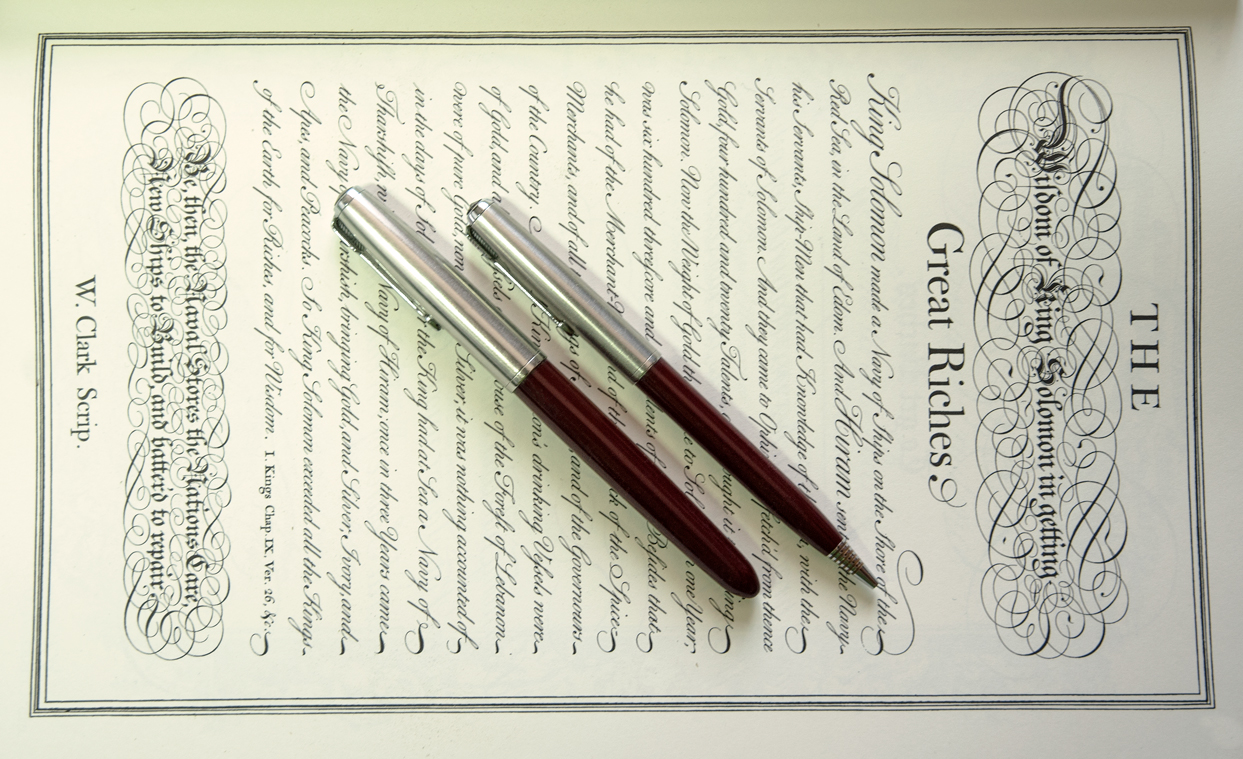 THE
Wisdom of King Solomon in getting
Great Riches
King Solomon made a Navy of Ships on the Shore of the
Red Sea, in the Land of Edom. And Hiram sent the Navy
his Servants, Ship-Men that had Knowledge of with the
Servants of Solomon. And they came to Ophir fetch'd from thence
Gold four hundred and twenty Talents,
Solomon. Now the Weight of Gold to one Year,
was six hundred threescore and of Besides that
he had of the Merchant- of the Spice
Merchants, and of all of and of the Governours
of the Country. drinking Vessels were
of Gold, and of the Forest of Lebanon
were of pure Gold, Silver: it was nothing accounted of
in the days of the King had at Sea a Navy of
Tharshish, Navy of Hiram: once in three Years came
the Navy bringing Gold, and Silver, Ivory, and
Apes, and Peacocks. So King Solomon exceeded all the Kings
of the Earth for Riches, and for Wisdom. I. Kings Chap. IX, Ver. 26, &c.
Be, then, the Naval Stores the Nations Care,
New Ships to Build, and batter'd to repair.
W. Clark Scrip.